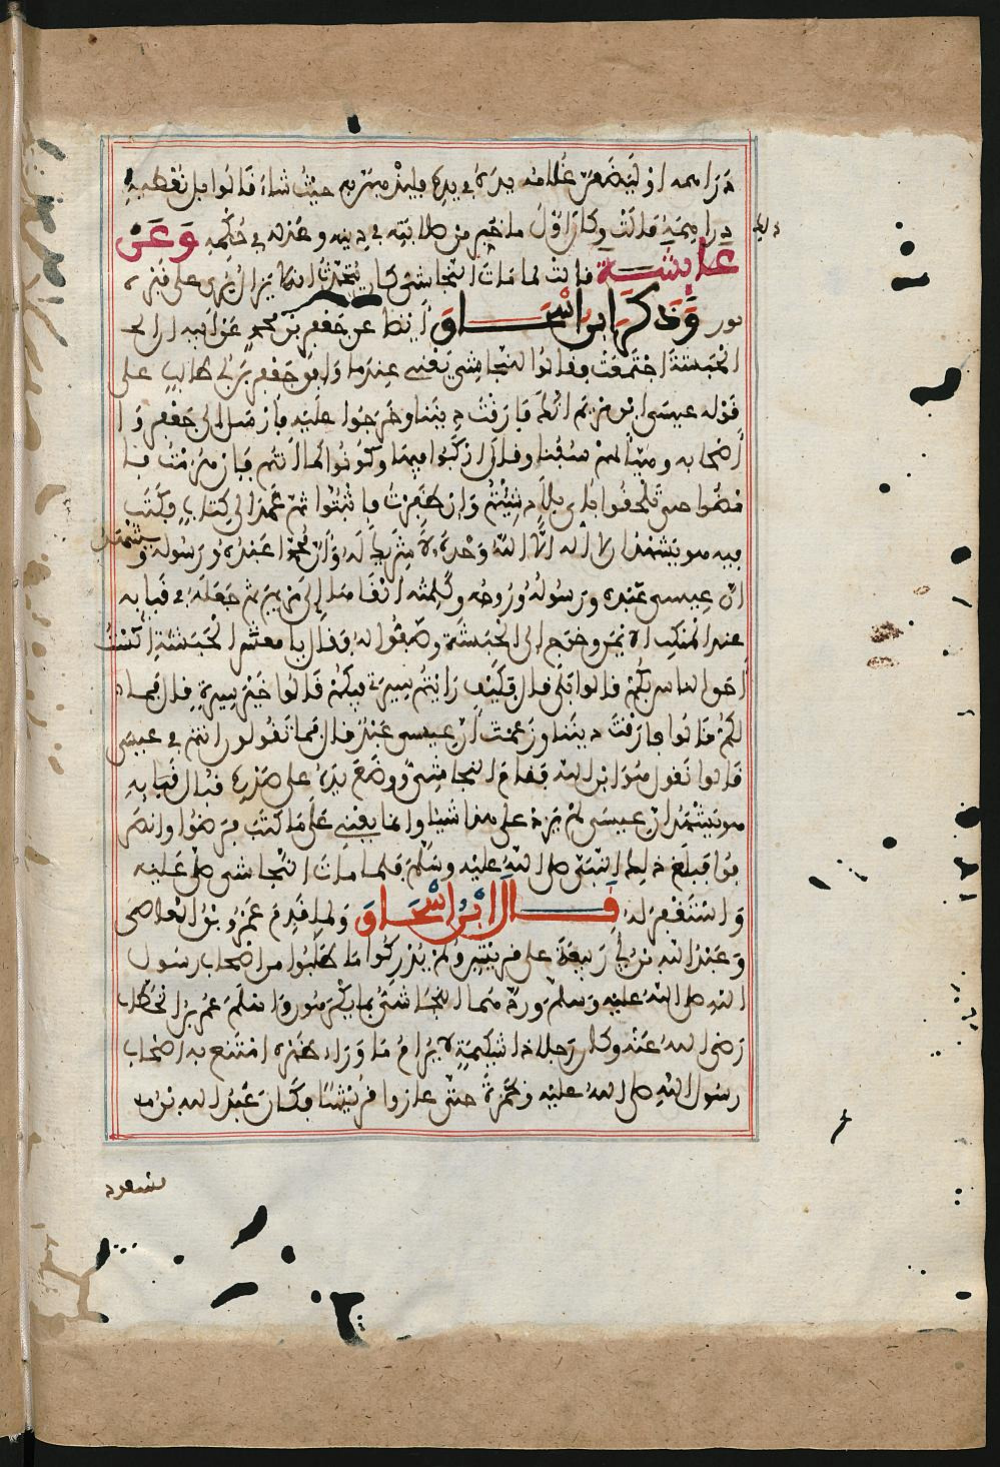 دراهمه او ليضعن غلامه يده في يده فليذهبن به حيث شاء قالوا بل نعطيه
دراهمه قالت وكان اول ما خبر من صلابته في دينه وعدله في حكمه وعن
ذلك
عايشة قالت لما مات النجاشي كان يتحدث انه لا يزال يرى على قبره
نور وذكر ابن اسحاق ايضا عن جعفر بن محمد عن ابيه ان
الحبشة اجتمعت فقالوا للنجاشي يعني عندما وابو جعفر بن ابي طالب على
قوله عيسى ابن مريم انك فارقت ديننا وخرجوا عليه فارسل الى جعفر و
اصحابه وهيأ لهم سفنا وقال اركبوا فيها وكونوا كما انتم فان هزمت فا
مضوا حتى تلحقوا باي بلاد شئتم وان ظفرت فاثبتوا ثم عمد الى كتاب فكتب
فيه هو يشهد ان لا اله الا الله وحده لا شريك له وان محمدا عبده ورسوله ويشهد
ان عيسى عبده ورسوله وروحه وكلمته القاها الى مريم ثم جعله في قبايه
عند المنكب الايمن وخرج الى الحبشة وصفوا له فقال يا معشر الحبشة الست
احق الناس بكم قالوا بلى قال فكيف رايتم سيرتي فيكم قالوا خير سيرة قال فما
لكم قالوا فارقت ديننا وزعمت ان عيسى عبد قال فما تقولون انتم في عيسى
قالوا نقول هو ابن الله فقام النجاشي ووضع يده على صدره قبال قبايه
هو يشهد ان عيسى لم يزد على هذا شيا وانما يعني على ما كتب فرضوا وانصر
فوا فبلغ ذلك النبي صلى الله عليه وسلم فلما مات النجاشي صلى عليه
واستغفر له قال ابن اسحاق ولما قدم عمرو بن العاصي
وعبد الله بن ابي ربيعة على قريش ولم يدركوا ما طلبوا من اصحاب رسول
الله صلى الله عليه وسلم وردهما النجاشي بما يكرهون واسلم عمر بن الخطاب
رضي الله عنه وكان رجلا ذا شكيمة لا يرام ما وراء ظهره امتنع به اصحاب
رسول الله صلى الله عليه وحمزة حتى عازوا قريشا وكان عبد الله بن مـ
مسعود